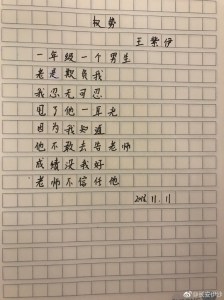 权势
王紫伊
一年级一个男生
老是欺负我
我忍无可忍
甩了他一耳光
因为我知道
他不敢去告老师
成绩没我好
老师不信任他
11.11